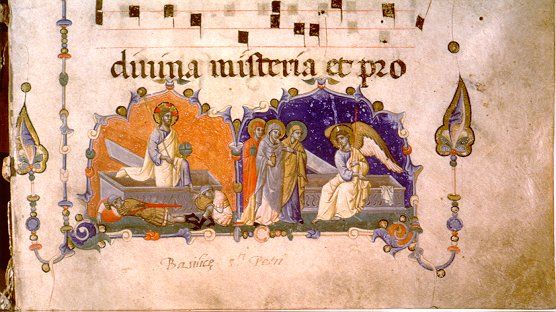 divina misteria et pro
Basilice Sti Petri